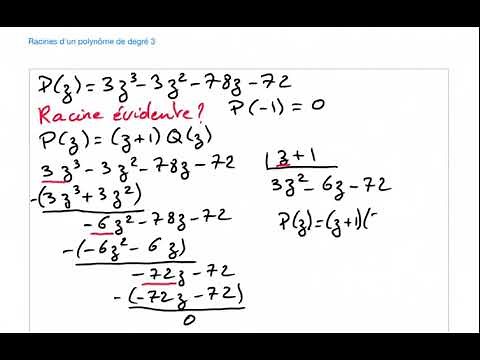 Racines d'un polynôme de degré 3
P(z) = 3z³ - 3z² - 78z - 72
Racine évidente ? P(-1) = 0
P(z) = (z+1) Q(z)
3z³ - 3z² - 78z - 72 | z + 1
-(3z³ + 3z²) 3z² - 6z - 72
-6z² - 78z - 72 P(z) = (z+1)(
-(-6z² - 6z)
-72z - 72
-(-72z - 72)
0